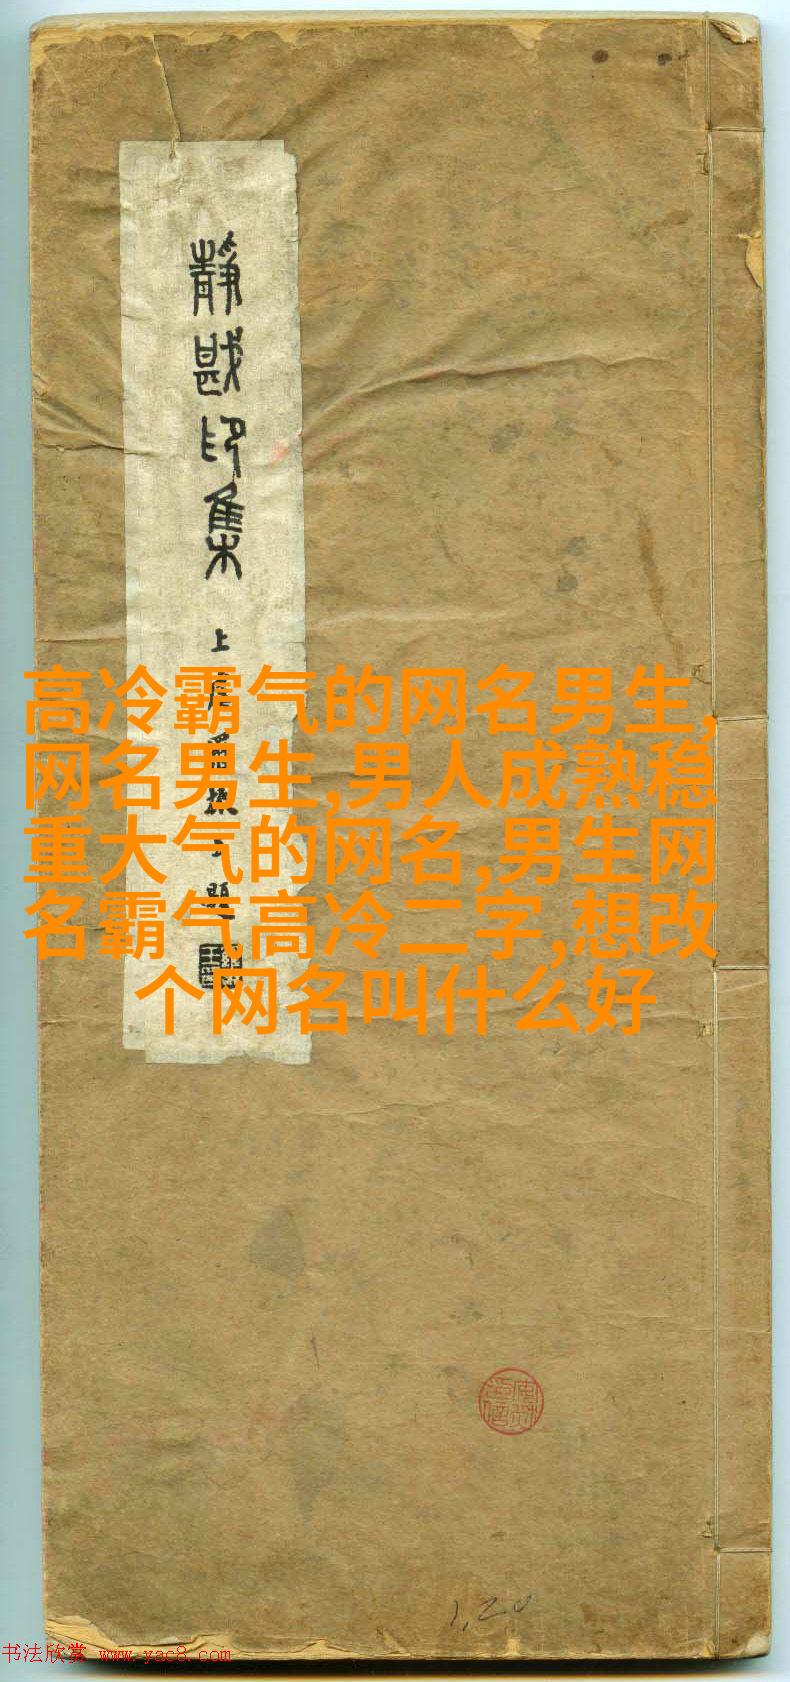 靜戡印集
高冷霸气的网名男生,
网名男生,男人成熟稳
重大气的网名,男生网
名霸气高冷二字,想改
个网名叫什么好
1,20
书法欣赏 www.yac8.com